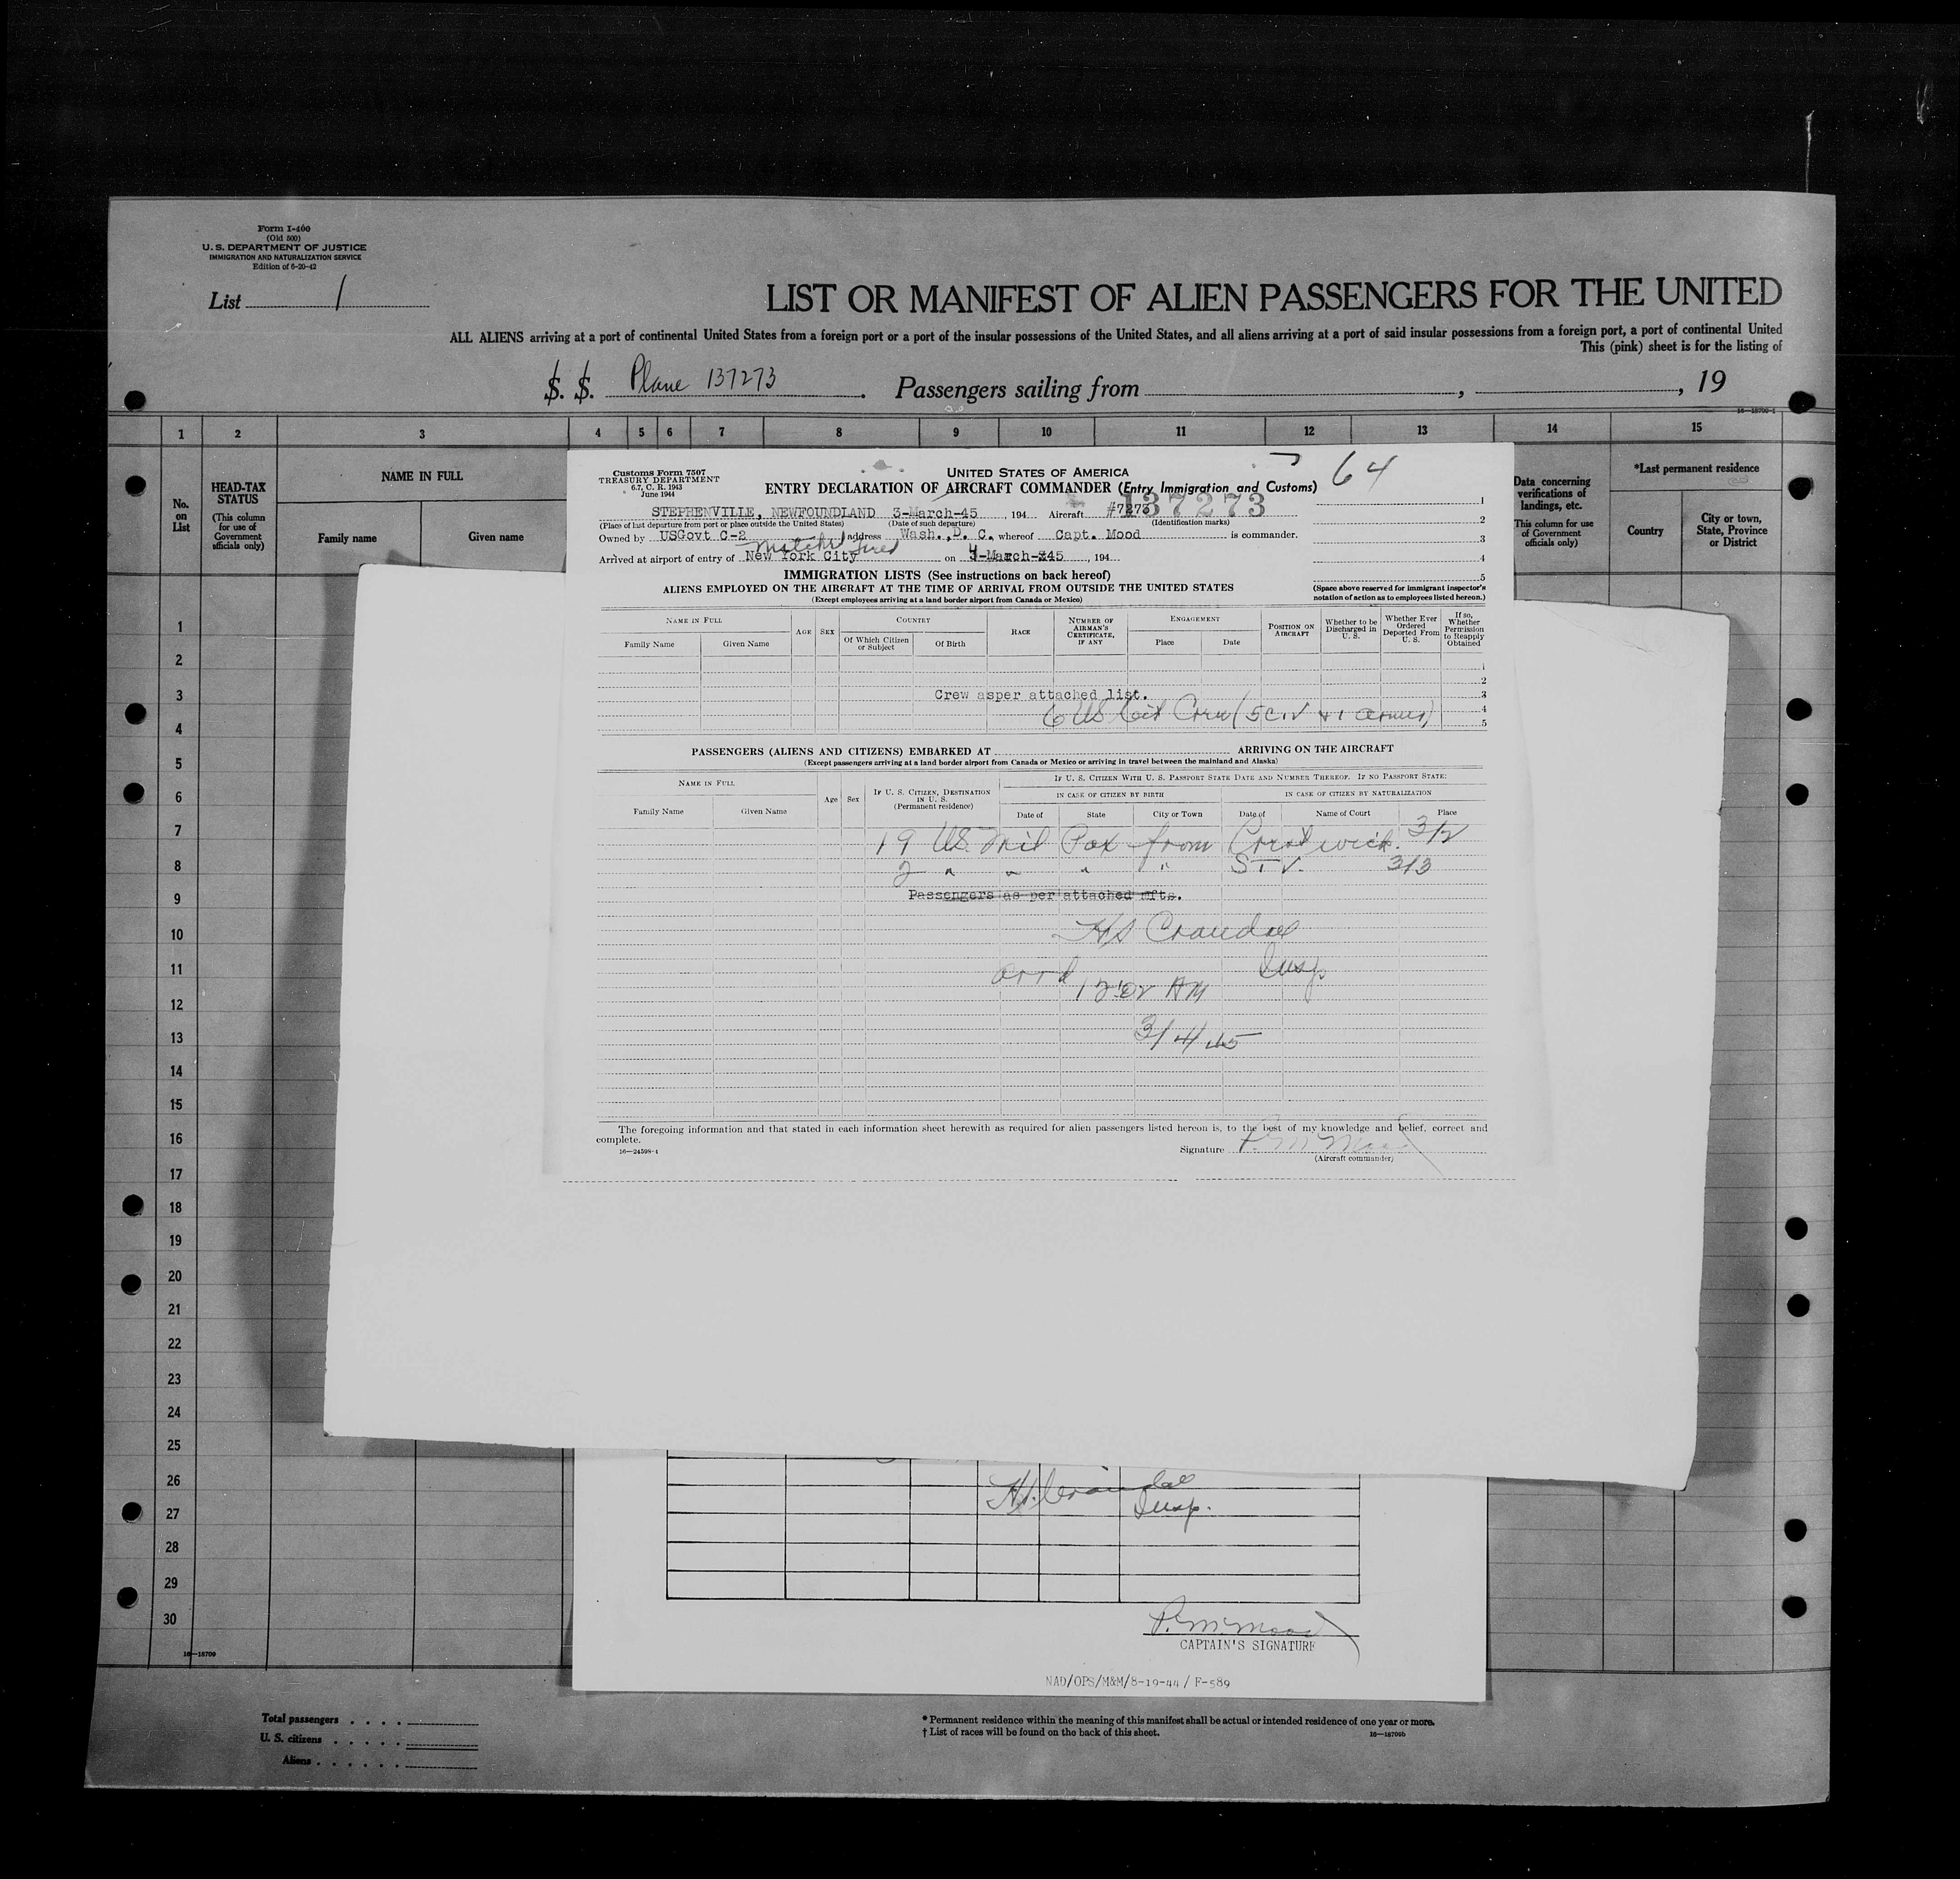 Form I-400
(Old 500)
U. S. DEPARTMENT OF JUSTICE
IMMIGRATION AND NATURALIZATION SERVICE
Edition of 6-20-42
List 1
LIST OR MANIFEST OF ALIEN PASSENGERS FOR THE UNITED
ALL ALIENS arriving at a port of continental United States from a foreign port or a port of the insular possessions of the United States, and all aliens arriving at a port of said insular possessions from a foreign port, a port of continental United
This (pink) sheet is for the listing of
S. S. Plane 137273. Passengers sailing from , , 19
16—18709-1
1 2 3 4 5 6 7 8 9 10 11 12 13 14 15
No. on List
HEAD-TAX STATUS
(This column for use of Government officials only)
NAME IN FULL
Family name Given name
Data concerning verifications of landings, etc.
(This column for use of Government officials only)
*Last permanent residence
Country City or town, State, Province or District
Customs Form 7507
TREASURY DEPARTMENT
6.7, C. R. 1943
June 1944
UNITED STATES OF AMERICA
64
ENTRY DECLARATION OF AIRCRAFT COMMANDER (Entry Immigration and Customs)
137273
STEPHENVILLE, NEWFOUNDLAND 3-March-45, 194 Aircraft #7273
(Place of last departure from port or place outside the United States) (Date of such departure) (Identification marks)
Owned by USGovt C-2 address Wash., D. C. whereof Capt. Mood is commander.
Mitchel
Arrived at airport of entry of New York City on 4-March-45, 194
1
2
3
4
5
IMMIGRATION LISTS (See instructions on back hereof)
ALIENS EMPLOYED ON THE AIRCRAFT AT THE TIME OF ARRIVAL FROM OUTSIDE THE UNITED STATES
(Except employees arriving at a land border airport from Canada or Mexico)
(Space above reserved for immigrant inspector's notation of action as to employees listed hereon.)
NAME IN FULL
Family Name Given Name
AGE SEX
COUNTRY
Of Which Citizen or Subject Of Birth
RACE
NUMBER OF AIRMAN'S CERTIFICATE, IF ANY
ENGAGEMENT
Place Date
POSITION ON AIRCRAFT
Whether to be Discharged in U. S.
Whether Ever Ordered Deported From U. S.
If so, Whether Permission to Reapply Obtained
1
2
Crew asper attached list. 3
6 US Cit Crew (5 Civ + 1 ) 4
5
PASSENGERS (ALIENS AND CITIZENS) EMBARKED AT ARRIVING ON THE AIRCRAFT
(Except passengers arriving at a land border airport from Canada or Mexico or arriving in travel between the mainland and Alaska)
NAME IN FULL
Family Name Given Name
Age Sex
IF U. S. CITIZEN, DESTINATION IN U. S.
(Permanent residence)
IF U. S. CITIZEN WITH U. S. PASSPORT STATE DATE AND NUMBER THEREOF. IF NO PASSPORT STATE:
IN CASE OF CITIZEN BY BIRTH IN CASE OF CITIZEN BY NATURALIZATION
Date of State City or Town Date of Name of Court Place
19 US Mil Pax from 3/2
2 " " " " STV. 3/3
Passengers as per attached mfts.
HS Crandall
Insp
arrd 12:02 AM
3/4/45
The foregoing information and that stated in each information sheet herewith as required for alien passengers listed hereon is, to the best of my knowledge and belief, correct and
complete.
16—24598-1
Signature P. M. Mood
(Aircraft commander)
1
2
3
4
5
6
7
8
9
10
11
12
13
14
15
16
17
18
19
20
21
22
23
24
25
26
27
28
29
30
H.S. Crandall
Insp.
P. M. Mood
CAPTAIN'S SIGNATURE
NAD/OPS/M&M/8-19-44/ F-589
16—18709
Total passengers
U. S. citizens
Aliens
* Permanent residence within the meaning of this manifest shall be actual or intended residence of one year or more.
† List of races will be found on the back of this sheet.
16—18709b